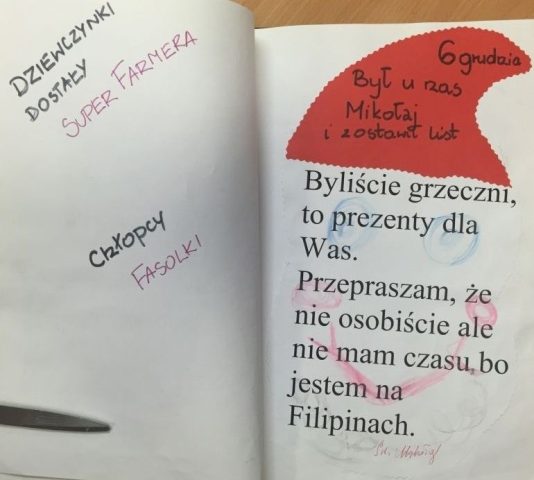 DZIEWCZYNKI
DOSTAŁY
SUPER FARMERA
CHŁOPCY
FASOLKI
6 grudzia
Był u nas
Mikołaj
i zostawił list
Byliście grzeczni,
to prezenty dla
Was.
Przepraszam, że
nie osobiście ale
nie mam czasu bo
jestem na
Filipinach.
Św. Mikołaj